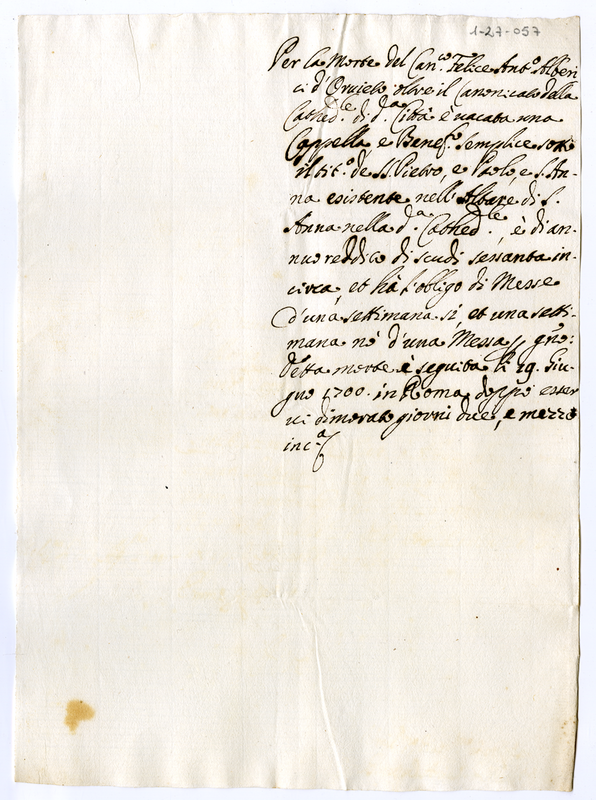 1-27-057
Per la Morte del Can.co Felice Ant.o Alberi
ci d'Orvieto oltre il Canonicato della
Cathed.le di d.a Città è vacata una
Cappella, e Benef.o semplice sotto
il tit.o de SS. Pietro, e Paolo, e S. An-
na esistente nell'Altare di S.
Anna nella d.a Cathed.le, è di an-
nuo reddito di scudi sessanta in-
circa, et hà l'obligo di Messe
d'una settimana sì, et una setti-
mana nò d'una Messa //
detta morte è seguita li 19. Giu-
gno 1700. in Roma doppo esser
vi dimorato giorni due, e mezzo
inc.a